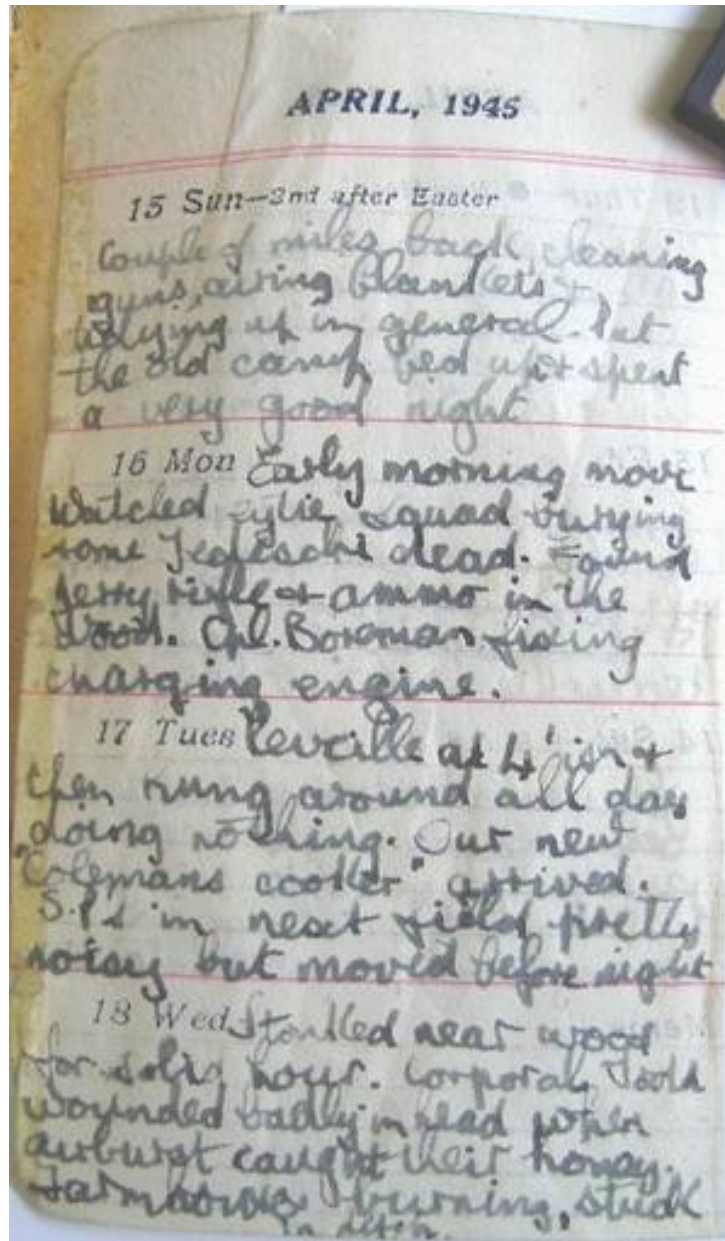 APRIL, 1945
15 Sun—2nd after Easter
Couple of miles back, cleaning
guns, airing blankets &
tidying up in general. Put
the old camp bed up & spent
a very good night
16 Mon Early morning move
Watched Eytie squad burying
some Tedeschi dead. Found
Jerry rifle & ammo in the
wood. Cpl. Boreman fixing
charging engine.
17 Tues Reveille at 4'ish &
then hung around all day
doing nothing. Our new
"Colemans cooker" arrived.
S.Ps in next field pretty
noisy but moved before night
18 Wed Stonked near wood
for solid hour. Corporal
wounded badly in head when
airburst caught their honey.
Farmhouse burning, stuck
in ditch.